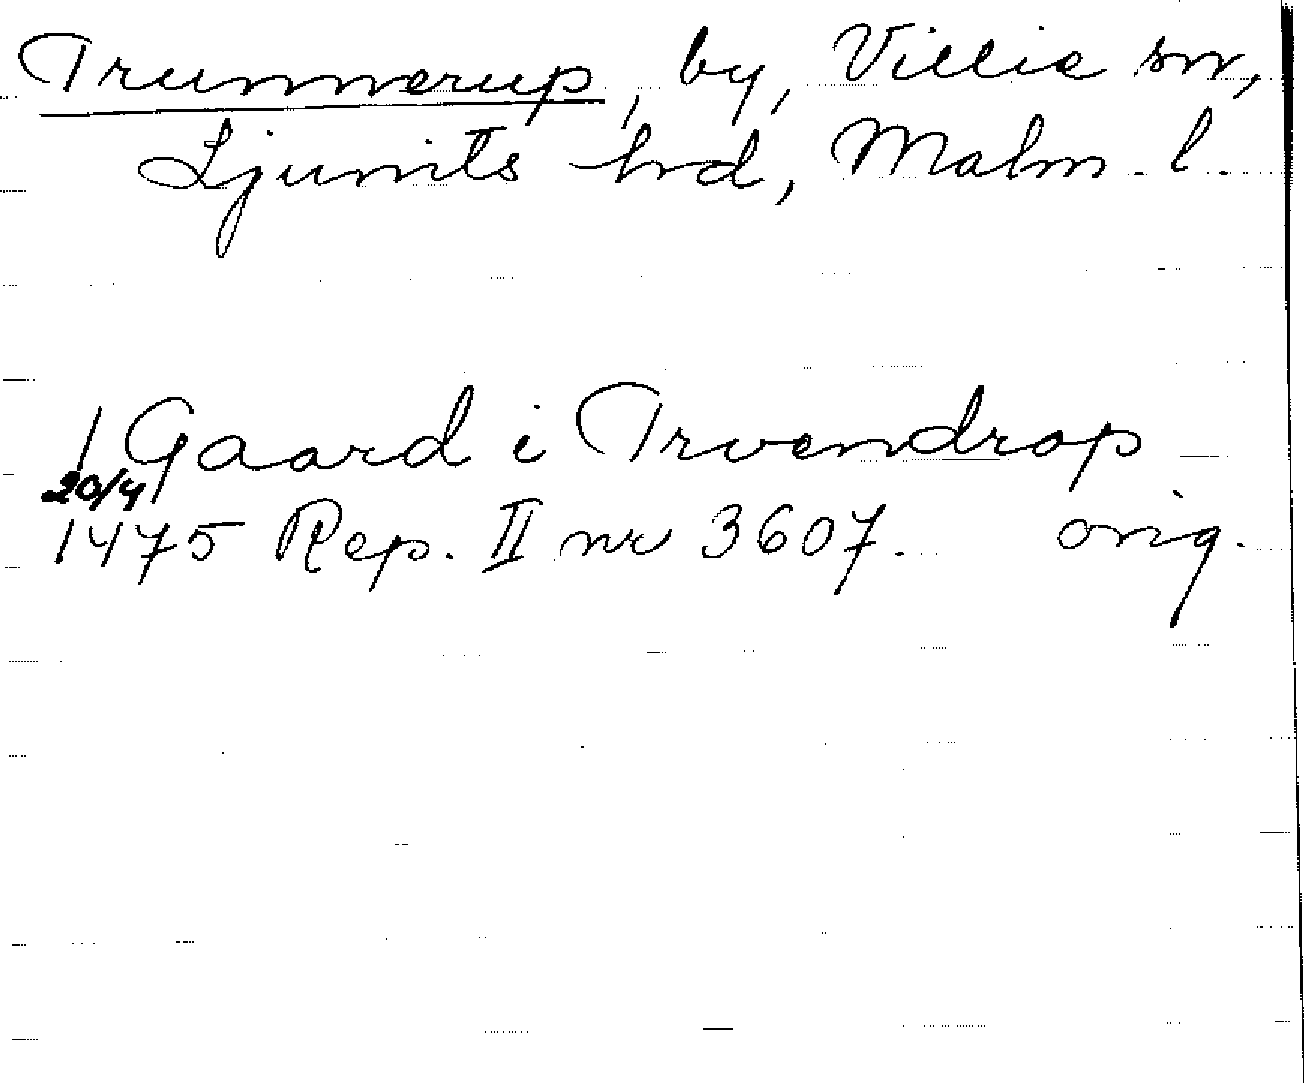 Trunnerup, by, Villie sn,
Ljunits hrd, Malm. l.
1 Gaard i Trvendrop
20/4
1475 Rep. II nr 3607. orig.